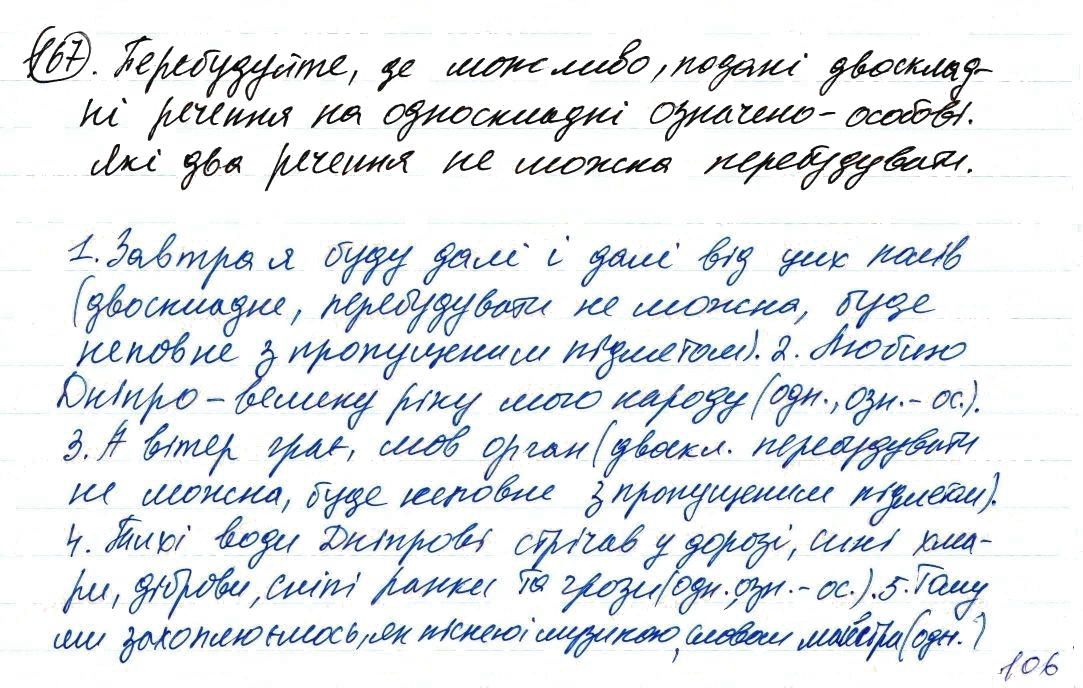 167. Перебудуйте, де можливо, подані двосклад-
ні речення на односкладні означено-особові.
Які два речення не можна перебудувати.
1. Завтра я буду далі і далі від цих полів
(двоскладне, перебудувати не можна, буде
неповне з пропущеним підметом). 2. Люблю
Дніпро - велику ріку мого народу (одн., озн.-ос.).
3. А вітер грає, мов орган (двоскл. перебудувати
не можна, буде неповне з пропущеним підметом).
4. Тихі води Дніпрові стрічав у дорозі, сині хма-
ри, діброви, сніпі ранки та грози (одн., озн.-ос.). 5. Тому
ми захоплюємось, як піснею і музикою, словом майстра (одн.)
106